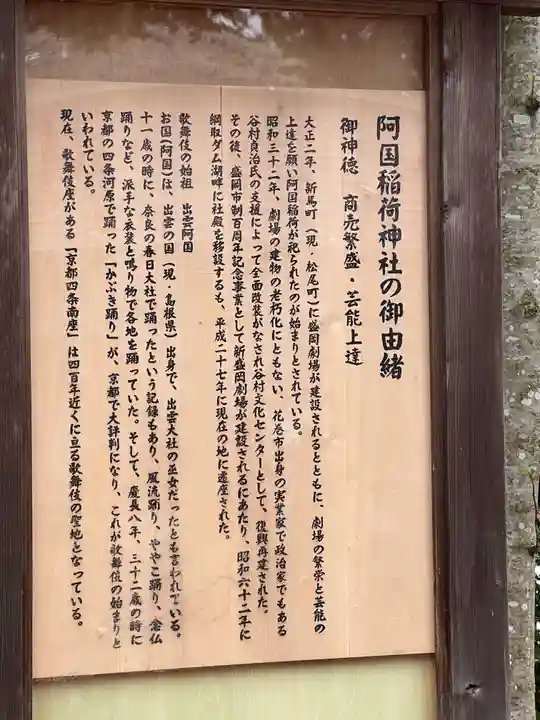 阿国稲荷神社の御由緒
御神徳　商売繁盛・芸能上達
大正二年、新馬町（現・松尾町）に盛岡劇場が建設されるとともに、劇場の繁栄と芸能の
上達を願い阿国稲荷が祀られたのが始まりとされている。
昭和三十二年、劇場の建物の老朽化にともない、花巻市出身の実業家で政治家でもある
谷村貞治氏の支援によって全面改装がなされ谷村文化センターとして、復興再建された。
その後、盛岡市制百周年記念事業として新盛岡劇場が建設されるにあたり、昭和六十二年に
綱取ダム湖畔に社殿を移設するも、平成二十七年に現在の地に遷座された。
歌舞伎の始祖　出雲阿国
お国（阿国）は、出雲の国（現・島根県）出身で、出雲大社の巫女だったとも言われている。
十一歳の時に、奈良の春日大社で踊ったという記録もあり、風流踊り、ややこ踊り、念仏
踊りなど、派手な衣装と鳴り物で各地を踊っていた。そして、慶長八年、三十二歳の時に
京都の四条河原で踊った「かぶき踊り」が、京都で大評判になり、これが歌舞伎の始まりと
いわれている。
現在、歌舞伎座がある「京都四条南座」は四百年近くに亘る歌舞伎の聖地となっている。